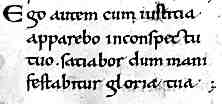 Ego autem cum iustitia
apparebo inconspectu
tuo. satiabor dum mani
festabitur gloria tua;